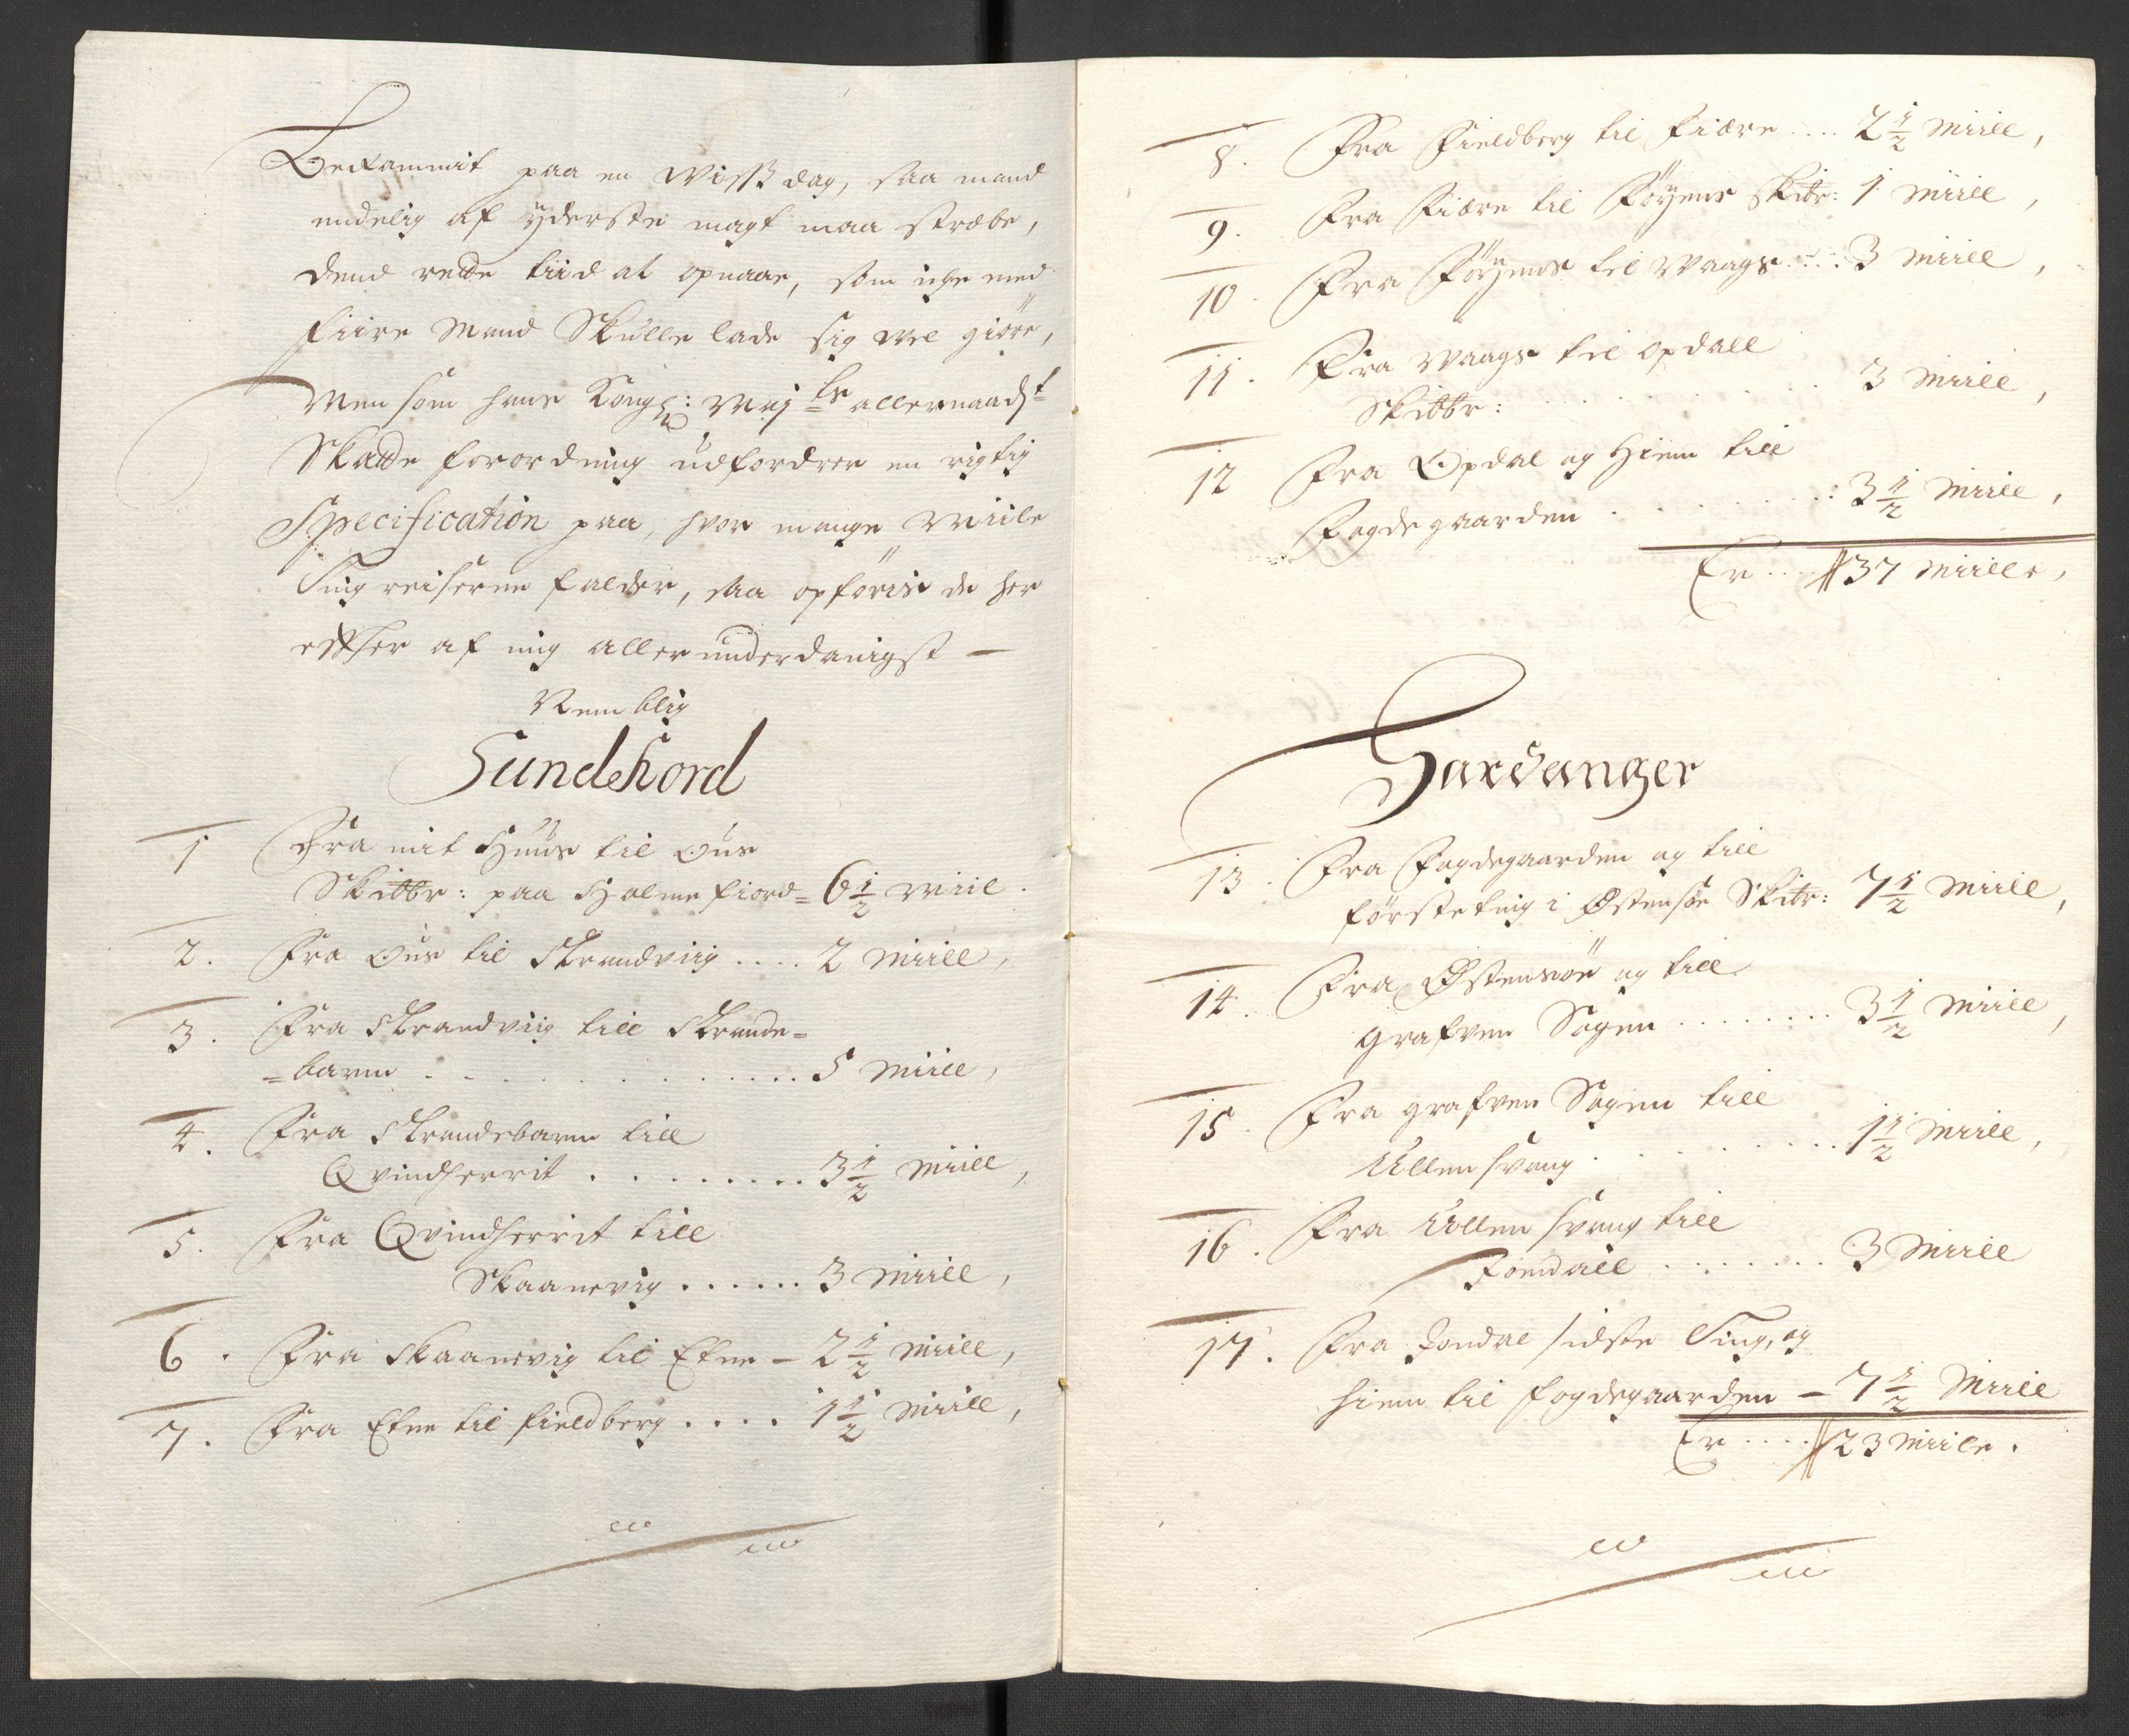 Berammit paa en Wissz dag, saa mand
endelig af ÿderste magt maa stræbe,
dend rette tiid at opnaae, som iche med
fiire Mand Skulle lade sig vel giöre,
Men som hans Kongl: Maj:ts allernaadst
Skatte forordning udfordrer en rigtig
Specification paa, hvor mange Miile
Ting reiserne falder, saa opföris de her
effter af mig allerunderdanigst —
Nemblig
Sundhord
1 Fra mit Huus til Ous
Skibbr: paa Holmefiord = 6 1/2 Miil.
2. Fra Ous til Strandviig .... 2 Miill,
3. Fra Strandviig till Strande=
=barm . . . . . . . . . 5 Miill,
4. Fra Strandebarm till
Qvindherrit . . . . . . . . 3 1/2 Miill,
5. Fra Qvindherrit till
Skaanevig . . . . . . 3 Miill,
6. Fra Skaanevig til Etne — 2 1/2 Miill,
7. Fra Etne til fieldberg .... 1 1/2 Miill,
8. Fra Fieldberg til Fiære .... 2 1/2 Miill,
9. Fra Fiære til Föÿens Skibr: 1 Miill,
10. Fra Föÿens til Waags .... 3 Miill,
11. Fra Waags til Opdall
Skibbr: . . . . . . . . 3 Miill,
12 Fra Opdal og Hiem till
Fogdegaarden . . . . . . . 3 1/2 Miill,
Er .... 37 Miille,
Hardanger
13. Fra Fogdegaarden og till
förste ting i Østensöe Skibr: 7 1/2 Miill,
14. Fra Østensöe og till
Grafven Sogen . . . . . . . . 3 1/2 Miill,
15. Fra Grafven Sogen till
Ullensvang . . . . . . . . 1 1/2 Miill,
16. Fra Ullensvang till
Jondall . . . . . . . 3 Miill
17. Fra Jondal sidste Ting, og
hiem til fogdegaarden — 7 1/2 Miill
Er .... 23 Miile.